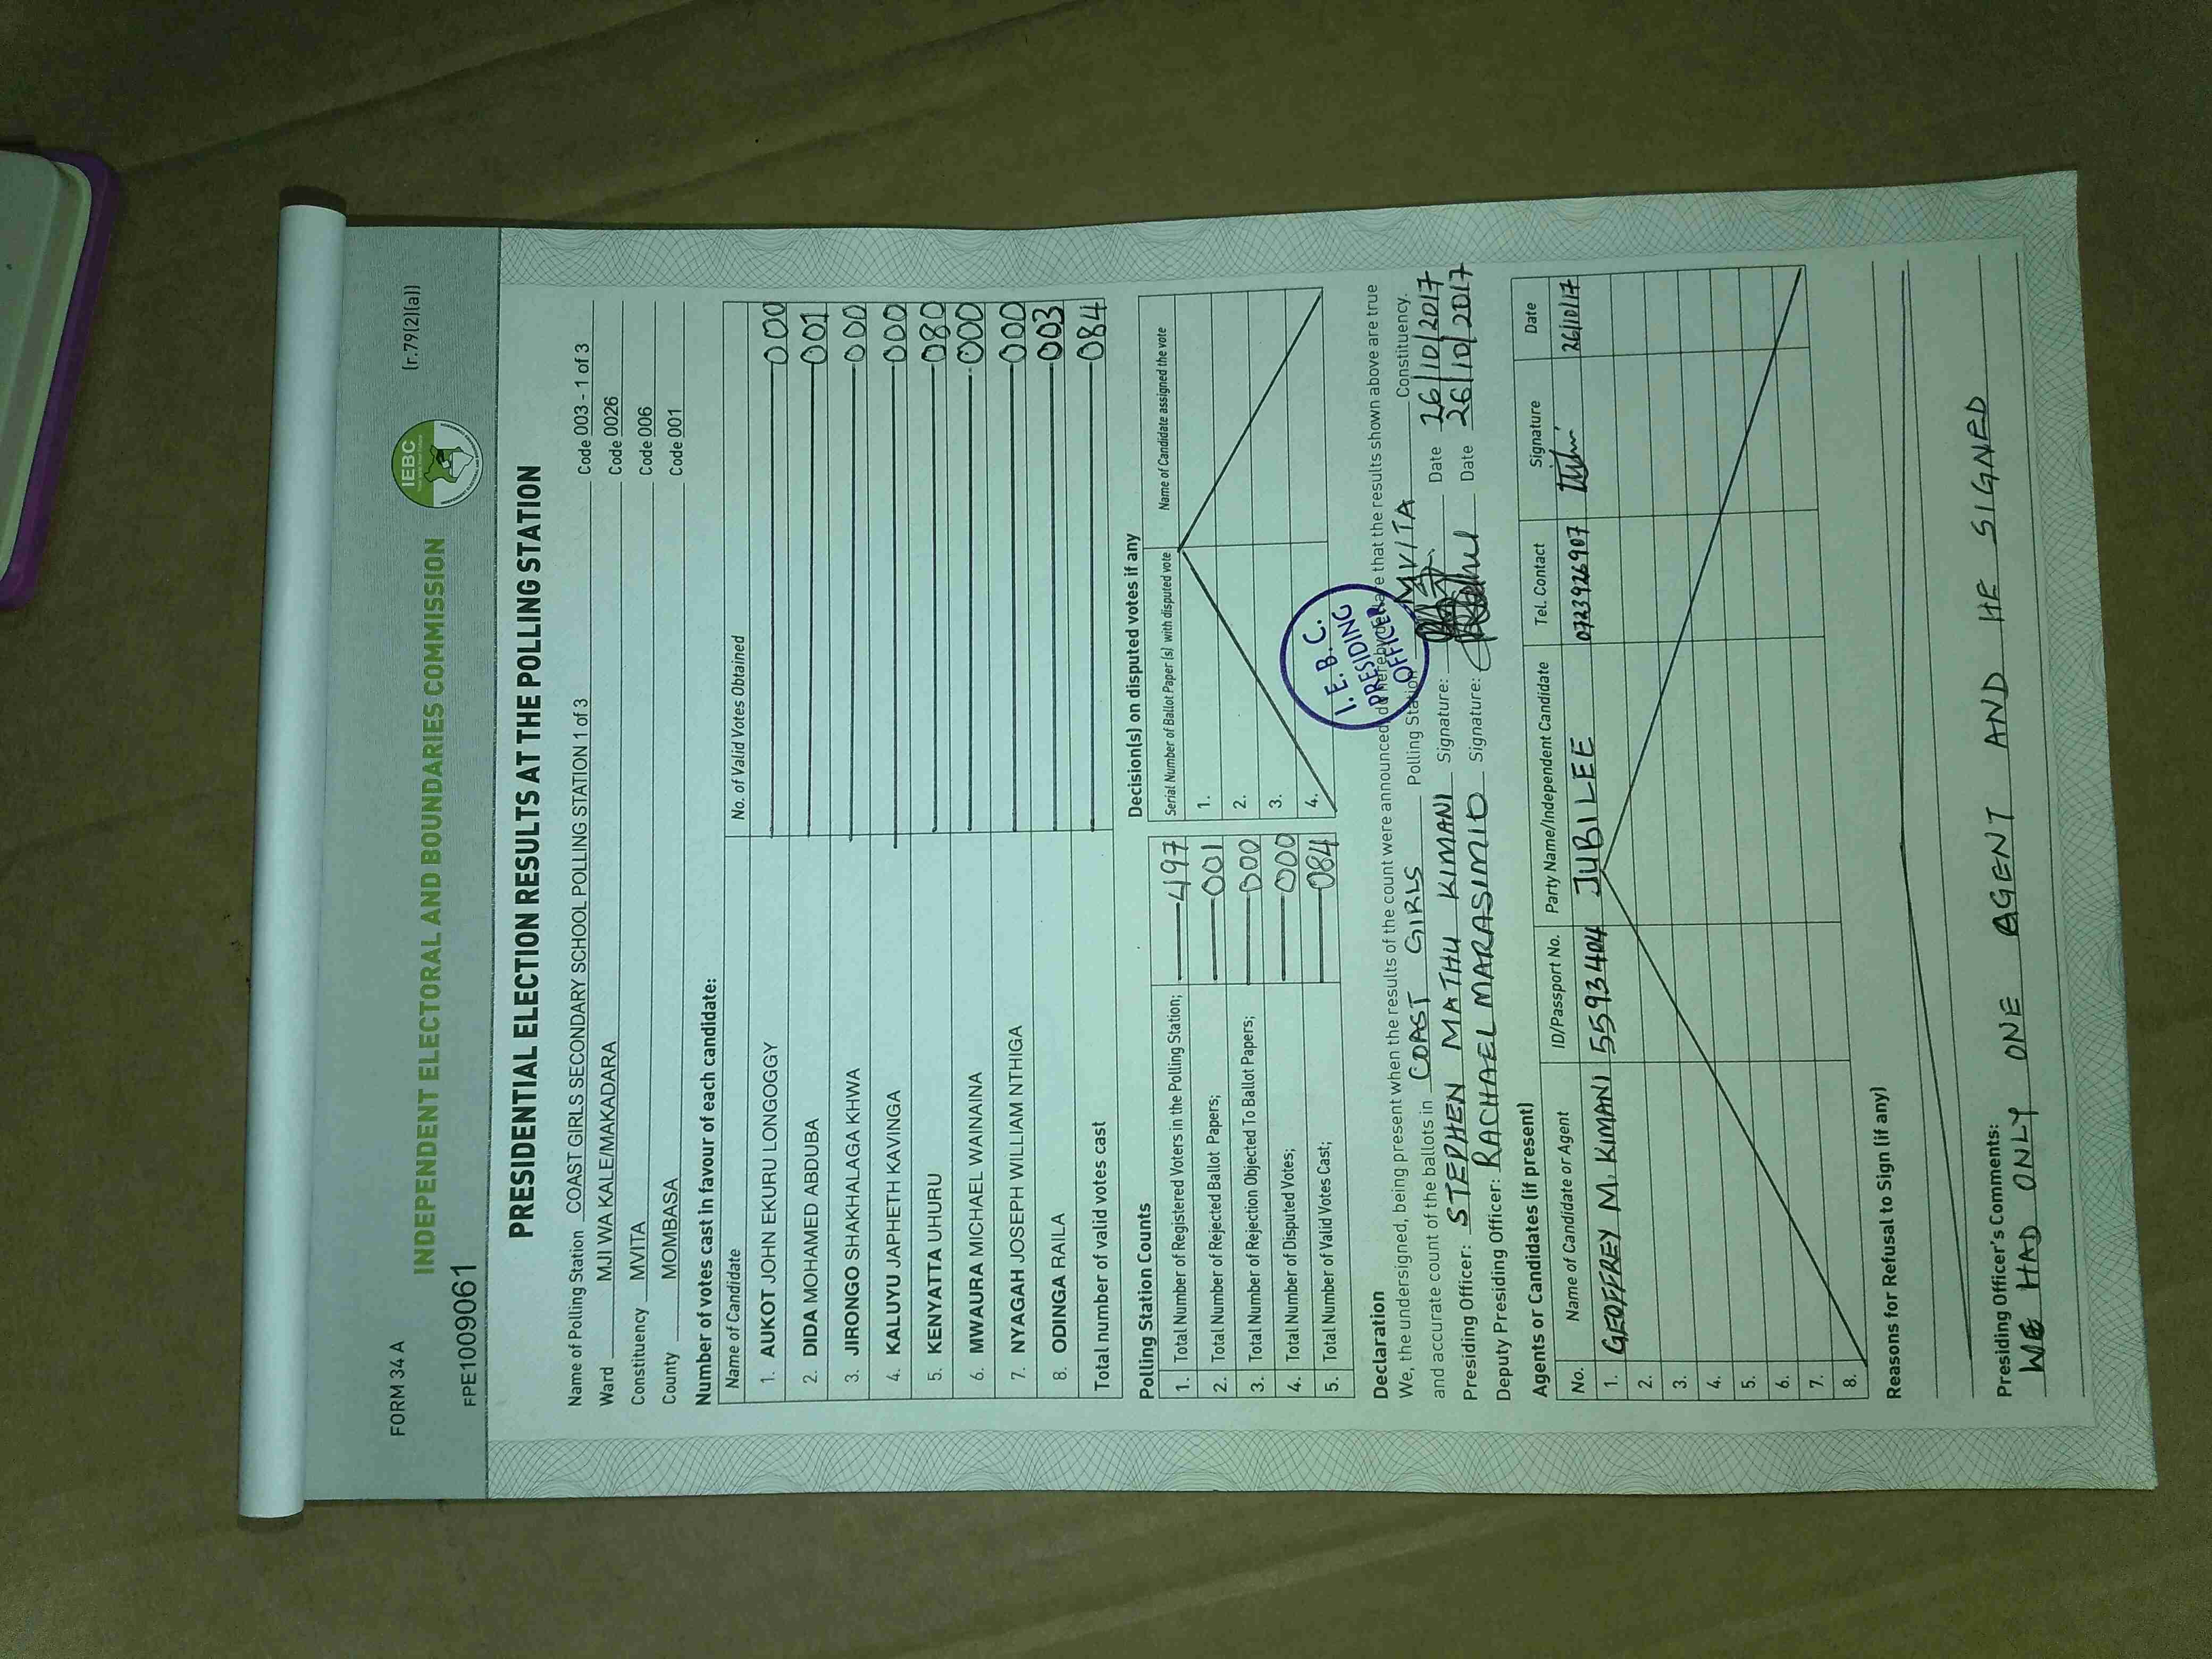 FORM 34 A
(r.79(2)(a))
IEBC
INDEPENDENT ELECTORAL AND BOUNDARIES COMMISSION
FPE1009061
PRESIDENTIAL ELECTION RESULTS AT THE POLLING STATION
Name of Polling Station COAST GIRLS SECONDARY SCHOOL POLLING STATION 1 of 3 Code 003 - 1 of 3
Ward MJI WA KALE/MAKADARA Code 0026
Constituency MVITA Code 006
County MOMBASA Code 001
Number of votes cast in favour of each candidate:
Name of Candidate No. of Valid Votes Obtained
1. AUKOT JOHN EKURU LONGOGGY 000
2. DIDA MOHAMED ABDUBA 001
3. JIRONGO SHAKHALAGA KHWA 000
4. KALUYU JAPHETH KAVINGA 000
5. KENYATTA UHURU 080
6. MWAURA MICHAEL WAINAINA 000
7. NYAGAH JOSEPH WILLIAM NTHIGA 000
8. ODINGA RAILA 003
Total number of valid votes cast 084
Polling Station Counts
1. Total Number of Registered Voters in the Polling Station; 497
2. Total Number of Rejected Ballot Papers; 001
3. Total Number of Rejection Objected To Ballot Papers; 000
4. Total Number of Disputed Votes; 000
5. Total Number of Valid Votes Cast; 084
Decision(s) on disputed votes if any
Serial Number of Ballot Paper (s) with disputed vote Name of Candidate assigned the vote
1.
2.
3.
4.
I. E. B. C.
PRESIDING
OFFICER
Declaration
We, the undersigned, being present when the results of the count were announced, do hereby declare that the results shown above are true
and accurate count of the ballots in COAST GIRLS Polling Station MVITA Constituency.
Presiding Officer: STEPHEN MATHU KIMANI Signature: Date 26/10/2017
Deputy Presiding Officer: RACHAEL MARASIMIO Signature: Date 26/10/2017
Agents or Candidates (if present)
No. Name of Candidate or Agent ID/Passport No. Party Name/Independent Candidate Tel. Contact Signature Date
1. GEOFFREY M. KIMANI 5593404 JUBILEE 0723926907 26/10/17
2.
3.
4.
5.
6.
7.
8.
Reasons for Refusal to Sign (if any)
Presiding Officer's Comments:
WE HAD ONLY ONE AGENT AND HE SIGNED